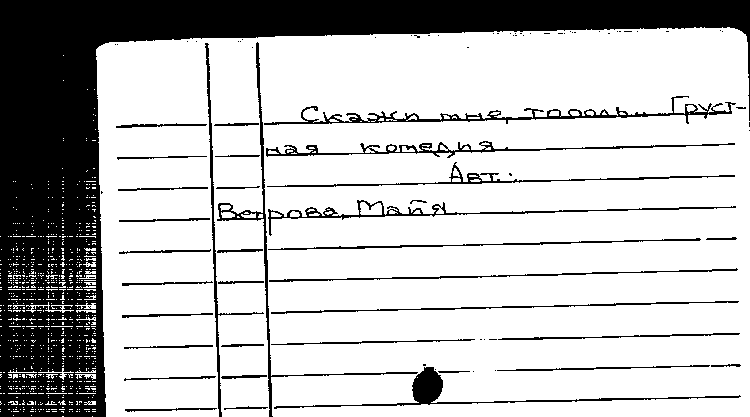 Скажи мне, тополь.. Груст-
ная комедия.
Авт.:
Ветрова, Майя